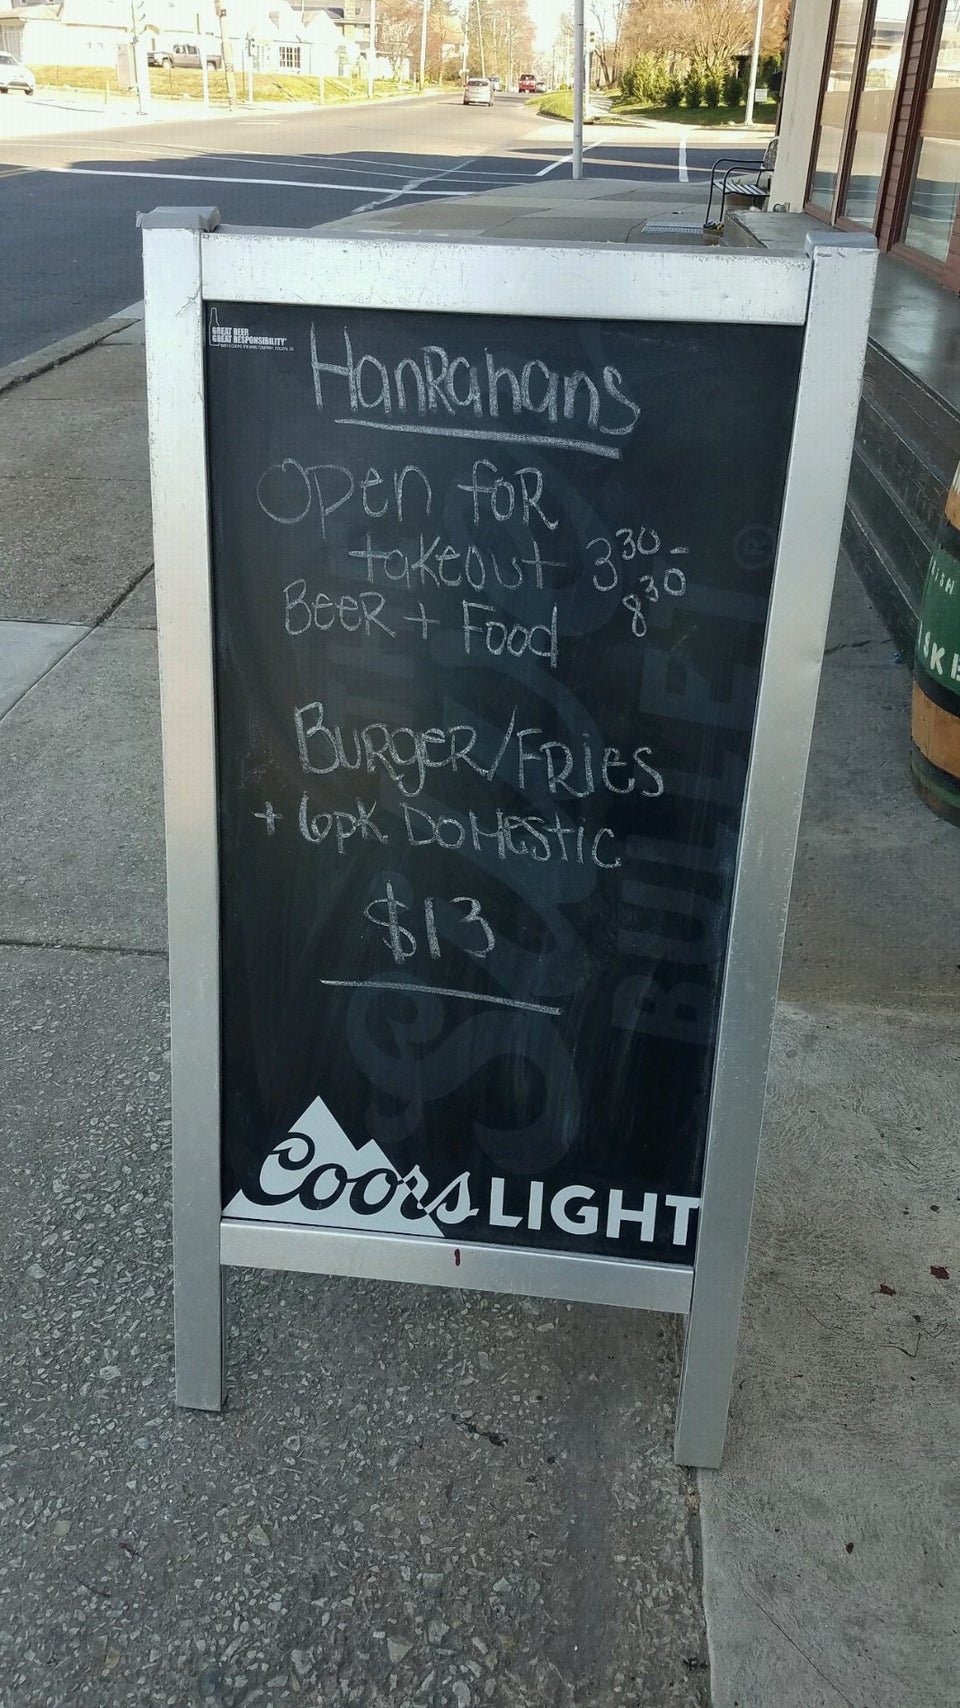 GREAT BEER
GREAT RESPONSIBILITY
HanRahans
Open foR
takeout 3:30-
8:30
BEER + Food
BURgER/FRies
+ 6pk DoMestic
$13
SILVER
BULLET ®
Coors LIGHT